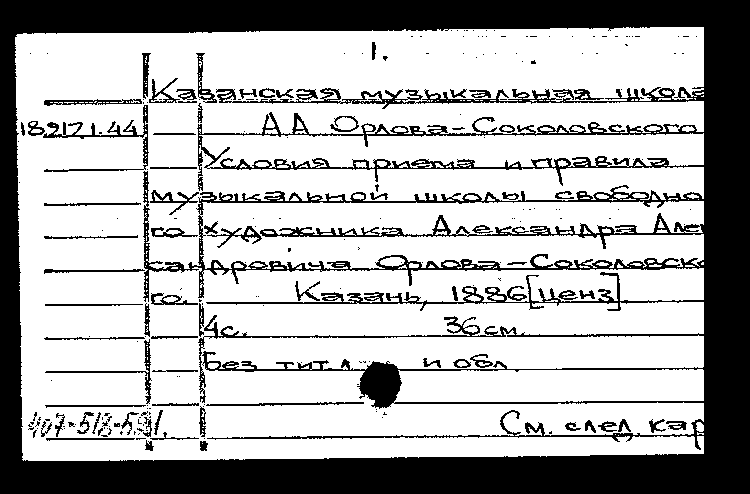 1.
Казанская музыкальная школа
18.217.1.44 А А Орлова-Соколовского
Условия приема и правила
музыкальной школы свободно
го художника Александра Алек
сандровича Орлова-Соколовско
го. Казань, 1886 [ценз].
4с. 36см.
Без тит.л. и обл.
См. след. кар